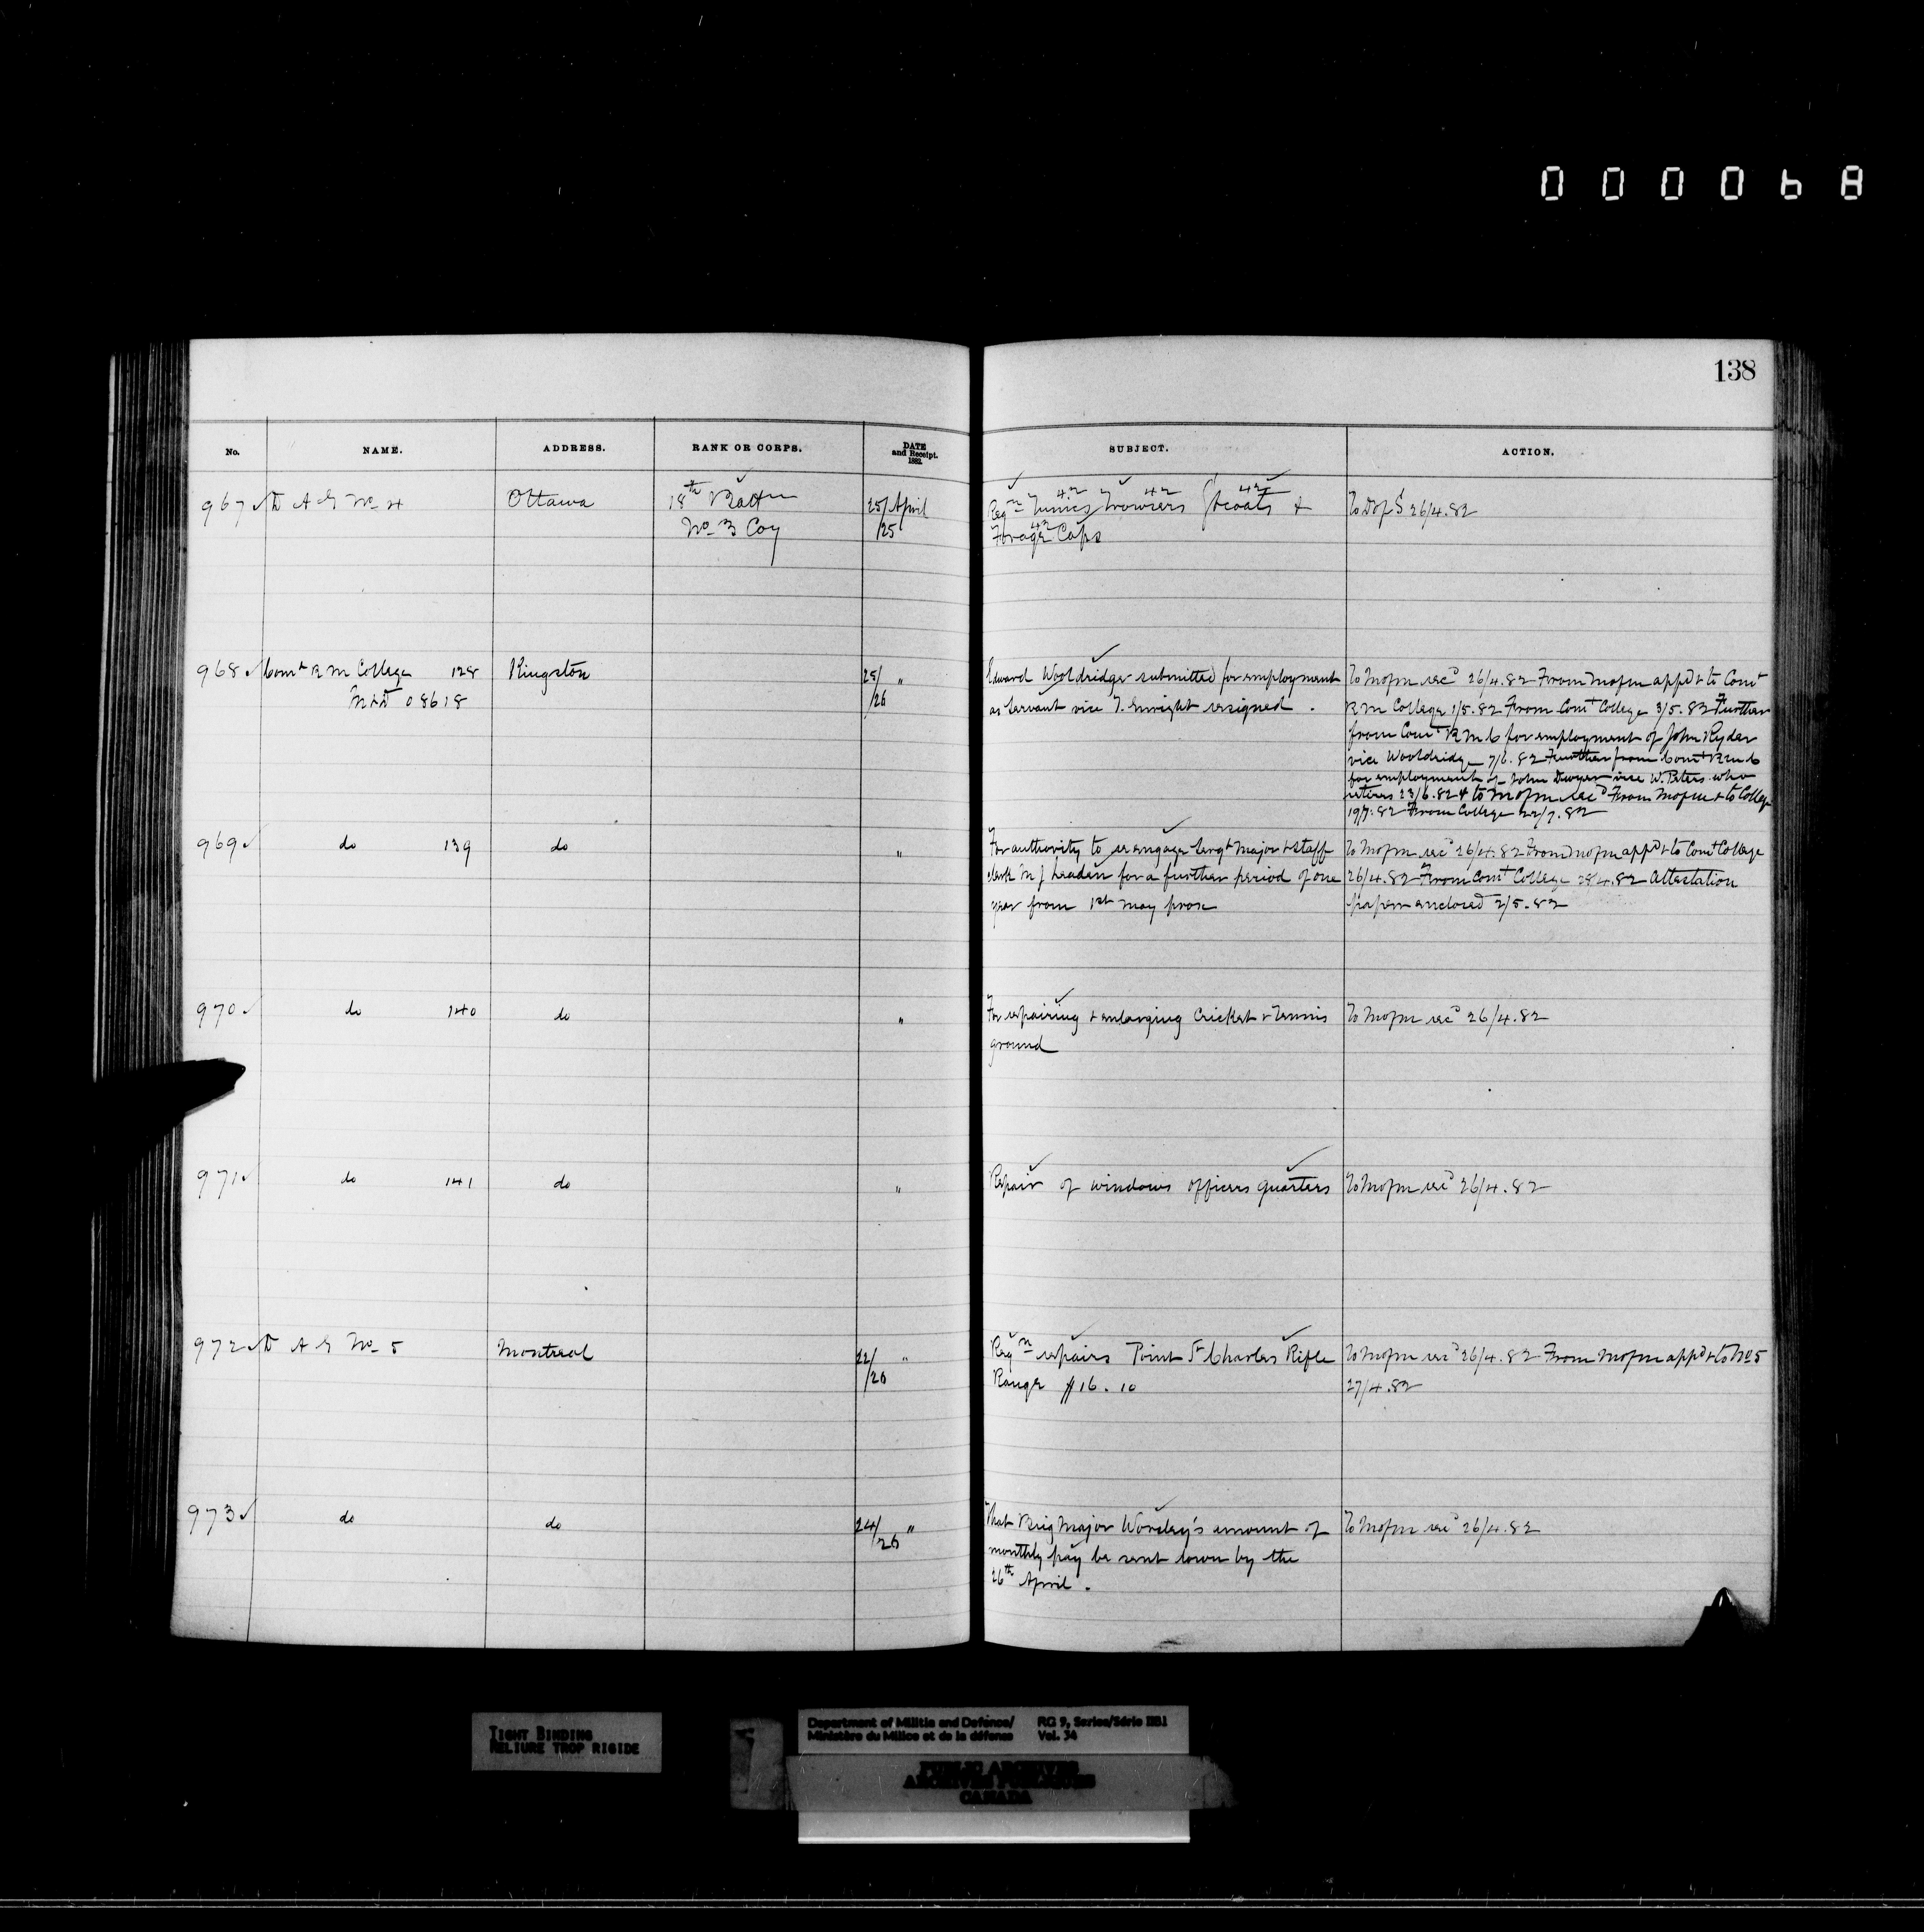 000068
138
No. NAME. ADDRESS. RANK OR CORPS. DATE and Receipt. 1882. SUBJECT. ACTION.
967 D A G No 4 Ottawa 18th Battn 25/April Reqn Tunics 42 Trowsers 42 Gt coats 42 & To D of S 26/4.82
No 3 Coy /25 Forage Caps 42
968 Comt R M College 128 Kingston 25/ " Edward Wooldridge submitted for employment To Mofm recd 26/4.82 From Mofm appd & to Comt
M&D 08618 /26 as servant vice T. Enright resigned. R M College 1/5.82 From Comt College 3/5.82 Further
from Comt R M C for employment of John Ryder
vice Wooldridge 7/6.82 Further from Comt R M C
for employment of John Dwyer vice W. Peters who
retires 23/6.82 & to Mofm recd From Mofm & to College
19/7.82 From College 22/7.82
969 do 139 do " For authority to reengage Sergt Major & staff To Mofm recd 26/4.82 From Mofm appd & to Comt College
clerk M J Headen for a further period of one 26/4.82 From Comt College 28/4.82 Attestation
year from 1st May prox papers enclosed 2/5.82
970 do 140 do " For repairing & enlarging Cricket & Tennis To Mofm recd 26/4.82
ground
971 do 141 do " Repair of windows officers quarters To Mofm recd 26/4.82
972 D A G No 5 Montreal 22/ " Reqn repairs Point St Charles Rifle To Mofm recd 26/4.82 From Mofm appd & to No 5
/26 Range $16.10 27/4.82
973 do do 24/ " That Brig Major Worsley's amount of To Mofm recd 26/4.82
/26 monthly pay be sent down by the
26th April.
TIGHT BINDING
RELIURE TROP RIGIDE
Department of Militia and Defence/ RG 9, Series/Série IIB1
Ministère du Milice et de la défense Vol. 34
PUBLIC ARCHIVES
ARCHIVES PUBLIQUES
CANADA